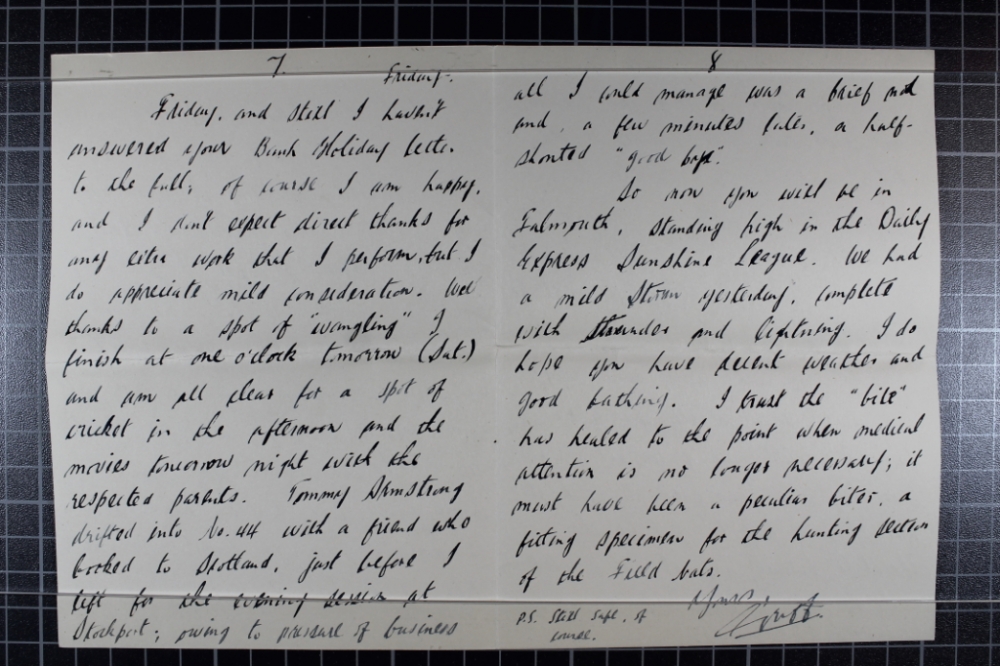 7.
Friday.
Friday, and still I haven't
answered your Bank Holiday letter
to the full; of course I am happy,
and I don't expect direct thanks for
any extra work that I perform, but I
do appreciate mild consideration. Well
thanks to a spot of "wangling" I
finish at one o'clock tomorrow (Sat.)
and am all clear for a spot of
cricket in the afternoon and the
movies tomorrow night with the
respected parents. Tommy Armstrong
drifted into No. 44 with a friend who
booked to Scotland, just before I
left for the evening session at
Stockport; owing to pressure of business
8
all I could manage was a brief nod
and, a few minutes later, a half-
shouted "good bye".
So now you will be in
Falmouth, standing high in the Daily
Express Sunshine League. We had
a mild storm yesterday, complete
with thunder and lightning. I do
hope you have decent weather and
good bathing. I trust the "bite"
has healed to the point when medical
attention is no longer necessary; it
must have been a peculiar biter, a
fitting specimen for the hunting section
of the Field
Yours
P.S. Still safe, of
course.